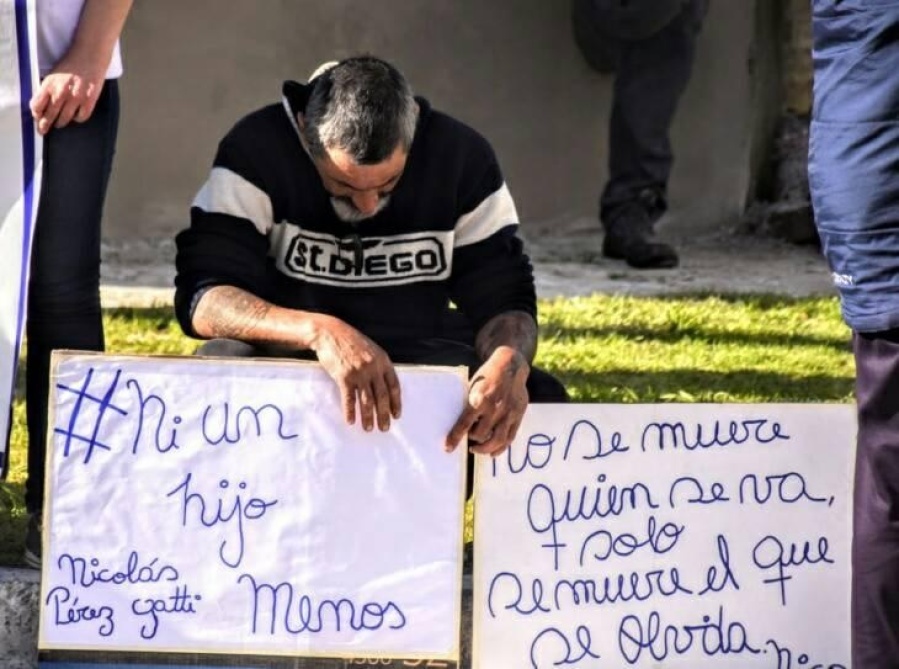 St. DIEGO
#Ni un
hijo
Nicolás
Pérez Gatti
Menos
No se muere
quien se va,
solo
se muere el que
se olvida.